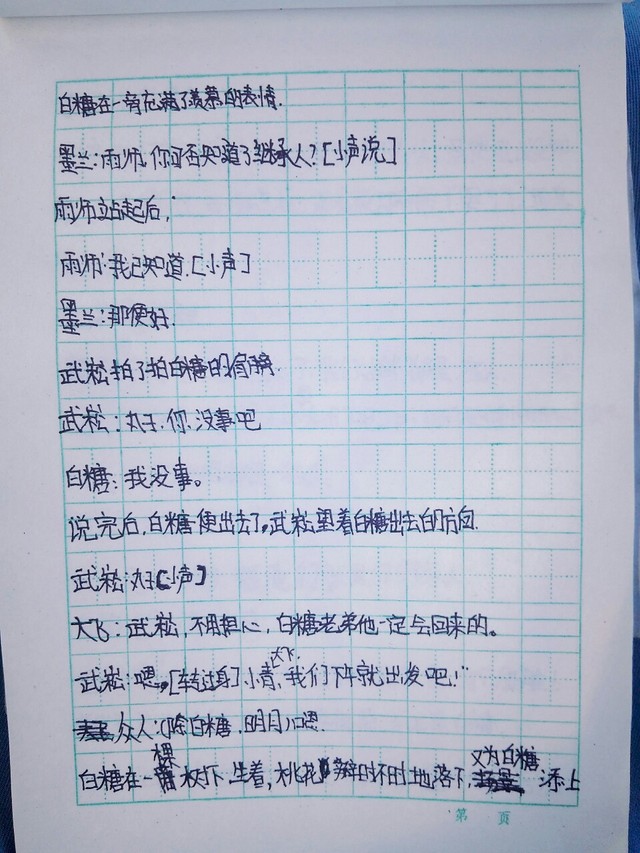 白糖在一旁充满了羡慕的表情.
墨兰:雨师,你可否知道了继承人?[小声说]
雨师站起后,
雨师:我已知道.[小声]
墨兰:那便好.
武崧拍了拍白糖的肩膀.
武崧:丸子.你.没事吧
白糖:我没事。
说完后,白糖便出去了,武崧望着白糖出去的方向.
武崧:丸子[小声]
大飞:武崧,不用担心,白糖老弟他一定会回来的。
武崧:嗯。[转过身]小青、大飞.我们下午就出发吧!"
众人:(除白糖.明月)嗯.
白糖在一棵树下.坐着,桃花瓣时不时地落下,又为白糖添上
第 页